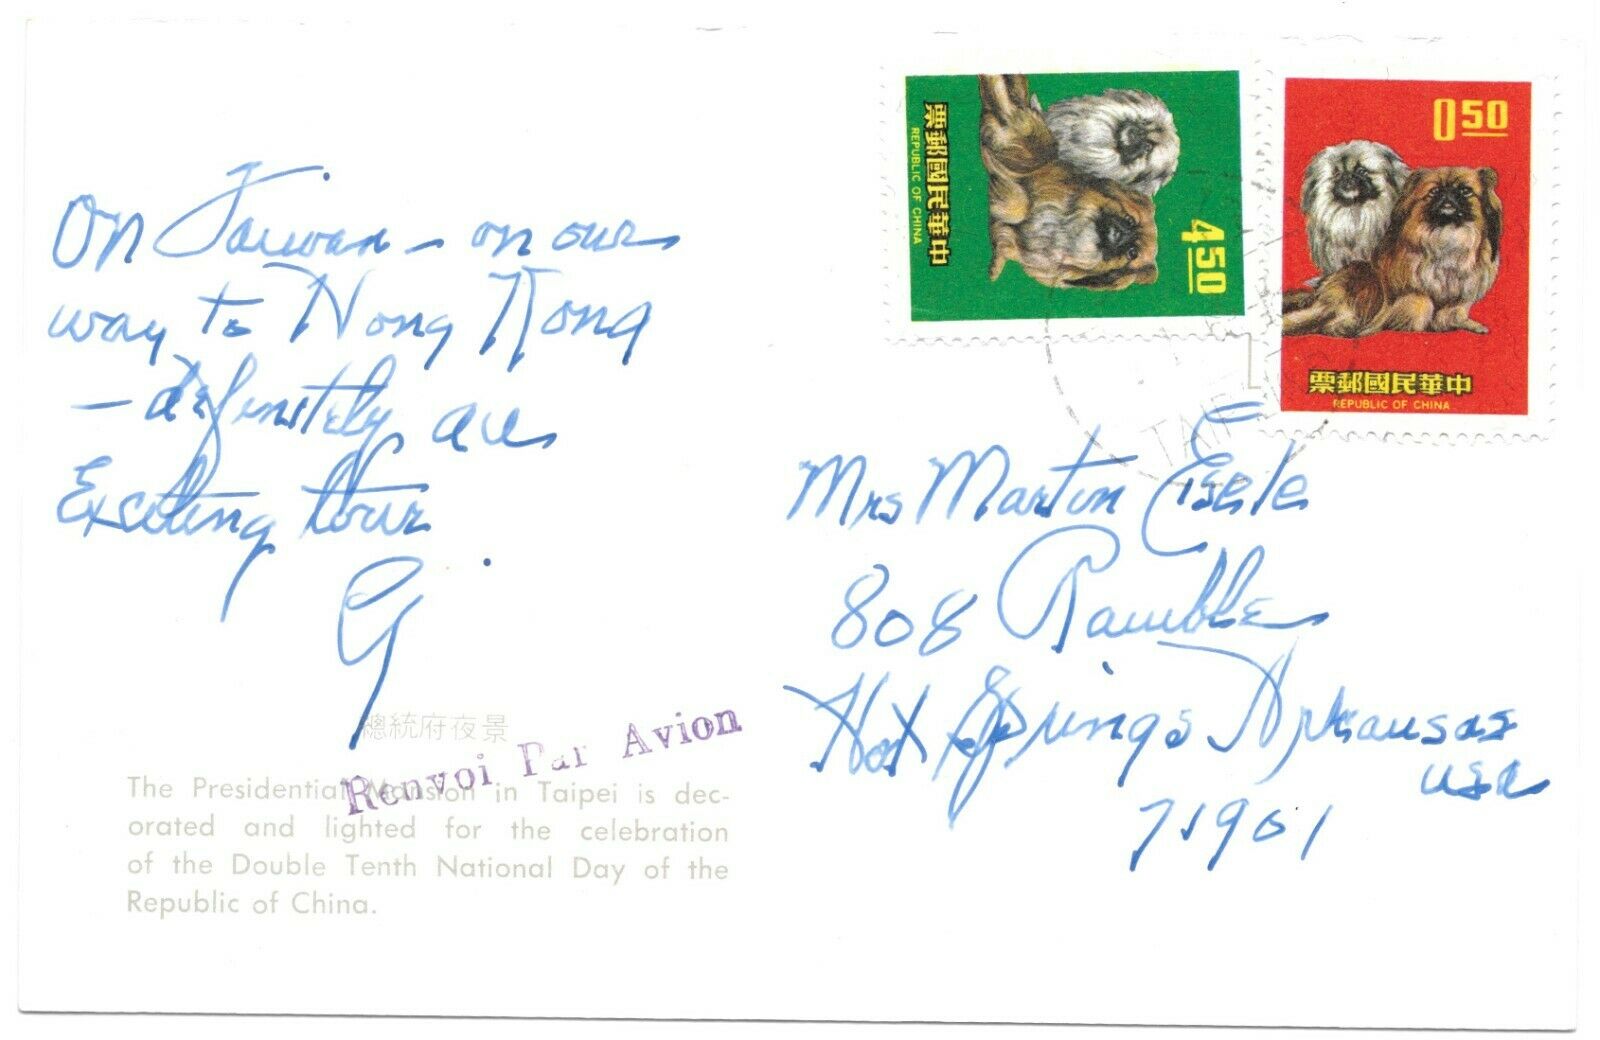 On Taiwan - on our
way to Hong Kong
- definitely an
Exciting tour
G.
總統府夜景
Renvoi Par Avion
The Presidential Mansion in Taipei is dec-
orated and lighted for the celebration
of the Double Tenth National Day of the
Republic of China.
中華民國郵票
REPUBLIC OF CHINA
4.50
0.50
中華民國郵票
REPUBLIC OF CHINA
Mrs Martin Eisele
808 Ramble
Hot Springs Arkansas
USA
71901